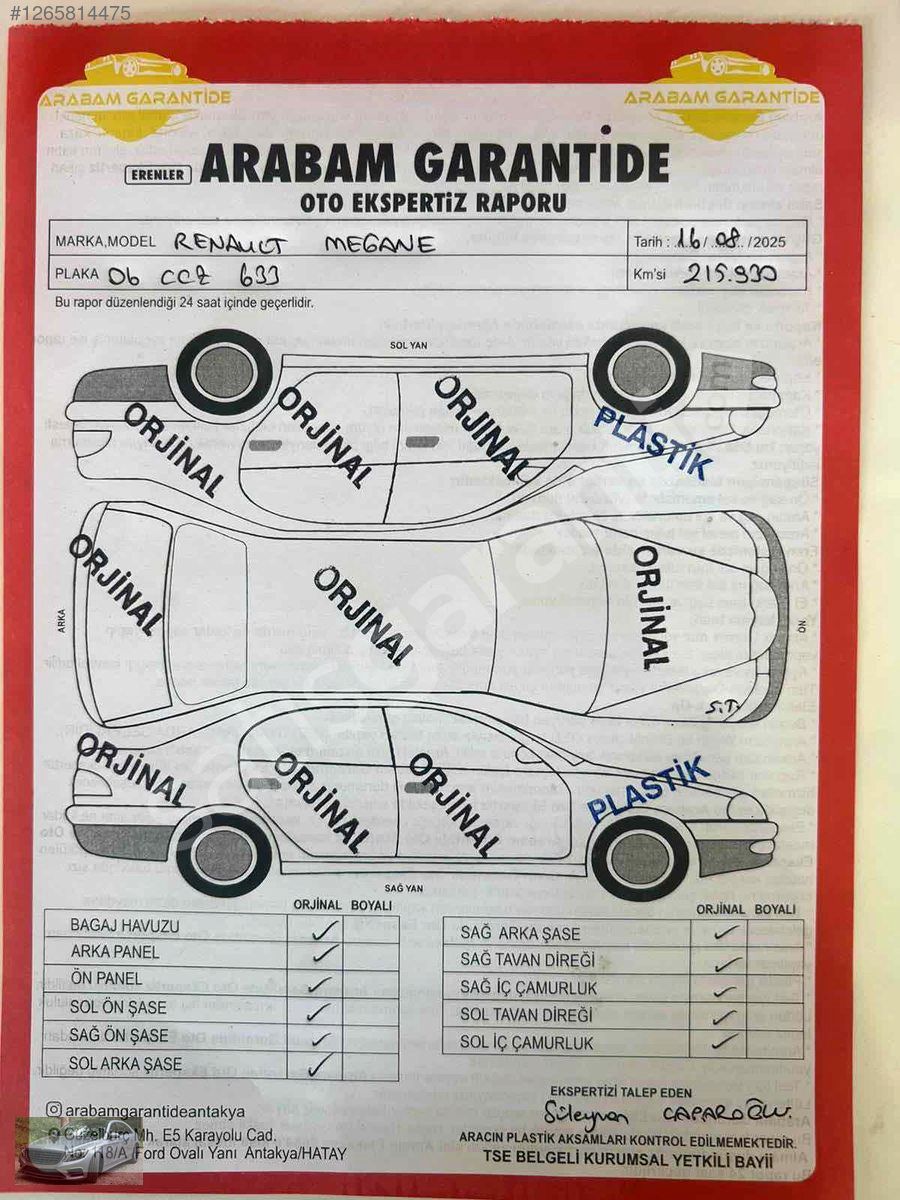 #1265814475
ARABAM GARANTİDE
ARABAM GARANTİDE
ERENLER ARABAM GARANTİDE
OTO EKSPERTİZ RAPORU
MARKA,MODEL RENAULT MEGANE Tarih : 16 / 08 / 2025
PLAKA 06 CCZ 633 Km'si 215.930
Bu rapor düzenlendiği 24 saat içinde geçerlidir.
SOL YAN
ORJİNAL ORJİNAL ORJİNAL PLASTİK
ARKA ORJİNAL ORJİNAL ORJİNAL ÖN
ORJİNAL ORJİNAL ORJİNAL PLASTİK
SAĞ YAN
ORJİNAL BOYALI
BAGAJ HAVUZU ✓
ARKA PANEL ✓
ÖN PANEL ✓
SOL ÖN ŞASE ✓
SAĞ ÖN ŞASE ✓
SOL ARKA ŞASE ✓
ORJİNAL BOYALI
SAĞ ARKA ŞASE ✓
SAĞ TAVAN DİREĞİ ✓
SAĞ İÇ ÇAMURLUK ✓
SOL TAVAN DİREĞİ ✓
SOL İÇ ÇAMURLUK ✓
arabamgarantideantakya
Mh. E5 Karayolu Cad.
/Ford Ovalı Yanı Antakya/HATAY
EKSPERTİZİ TALEP EDEN
Süleyman CAPAROĞLU.
ARACIN PLASTİK AKSAMLARI KONTROL EDİLMEMEKTEDİR.
TSE BELGELİ KURUMSAL YETKİLİ BAYİİ